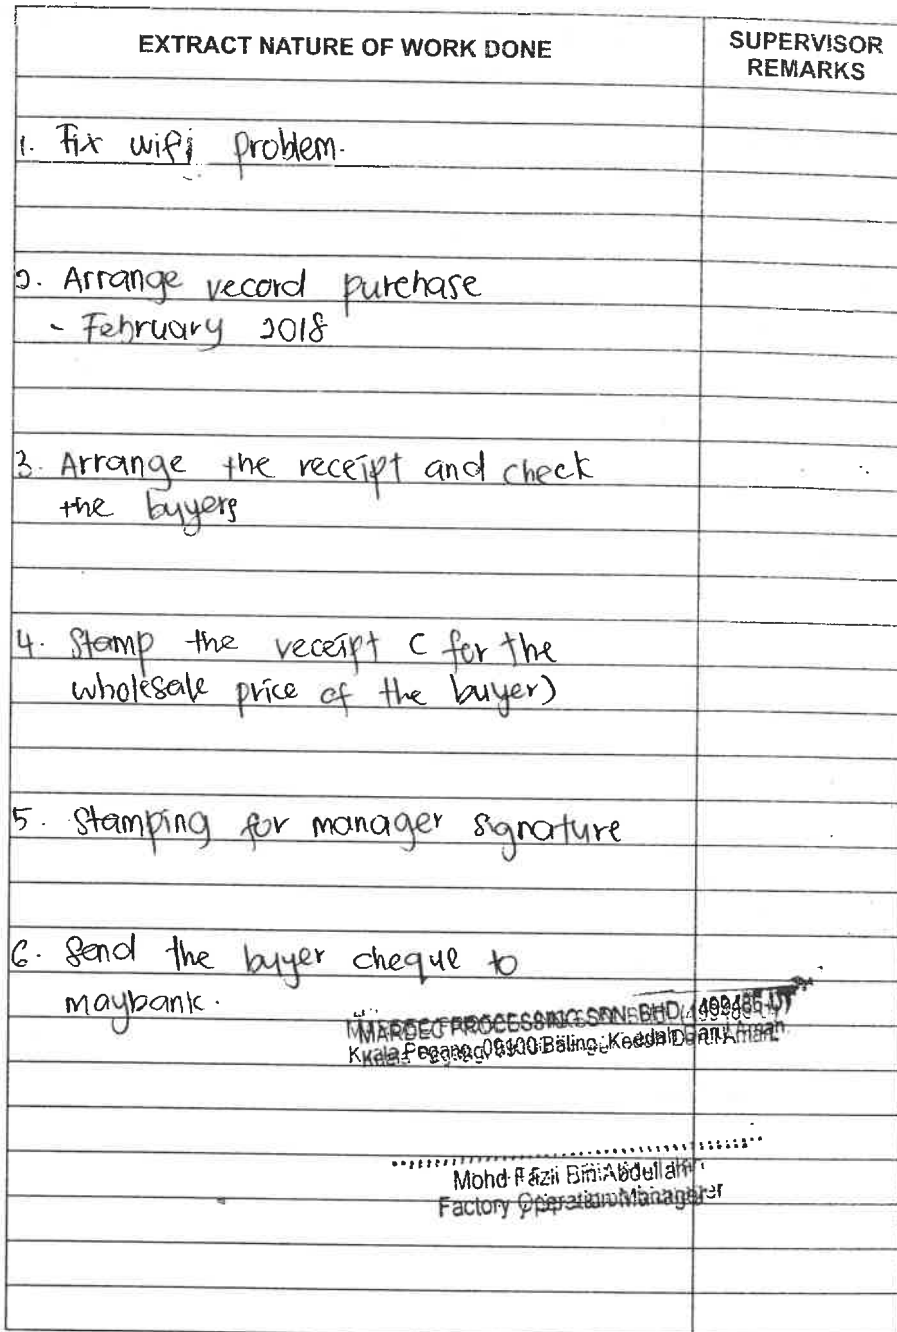 EXTRACT NATURE OF WORK DONE
SUPERVISOR
REMARKS
1. Fix wifi problem.
2. Arrange record purchase
- February 2018
3. Arrange the receipt and check
the buyers
4. Stamp the receipt ( for the
wholesale price of the buyer)
5. Stamping for manager signature
6. Send the buyer cheque to
maybank.
MARDEC PROCESSING SDN BHD (409485-U)
Kuala Pegang, 09100 Baling, Kedah Darul Aman.
Mohd Bin Abdullah
Factory Operation Manager